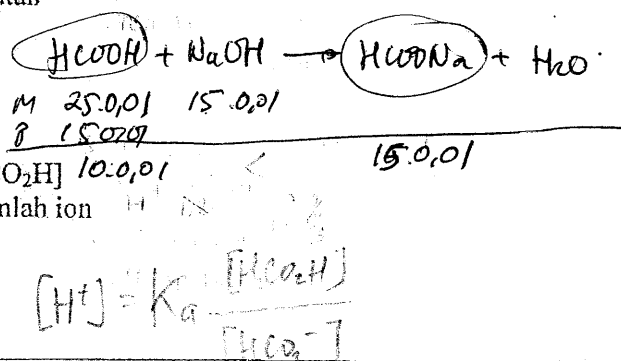 HCOOH + NaOH → HCOONa + H₂O
M 25.0,01 15.0,01
B 15.0,01
O₂H] 10.0,01 15.0,01
mlah ion
[H⁺] = Ka [HCO₂H]
[HCO₂⁻]